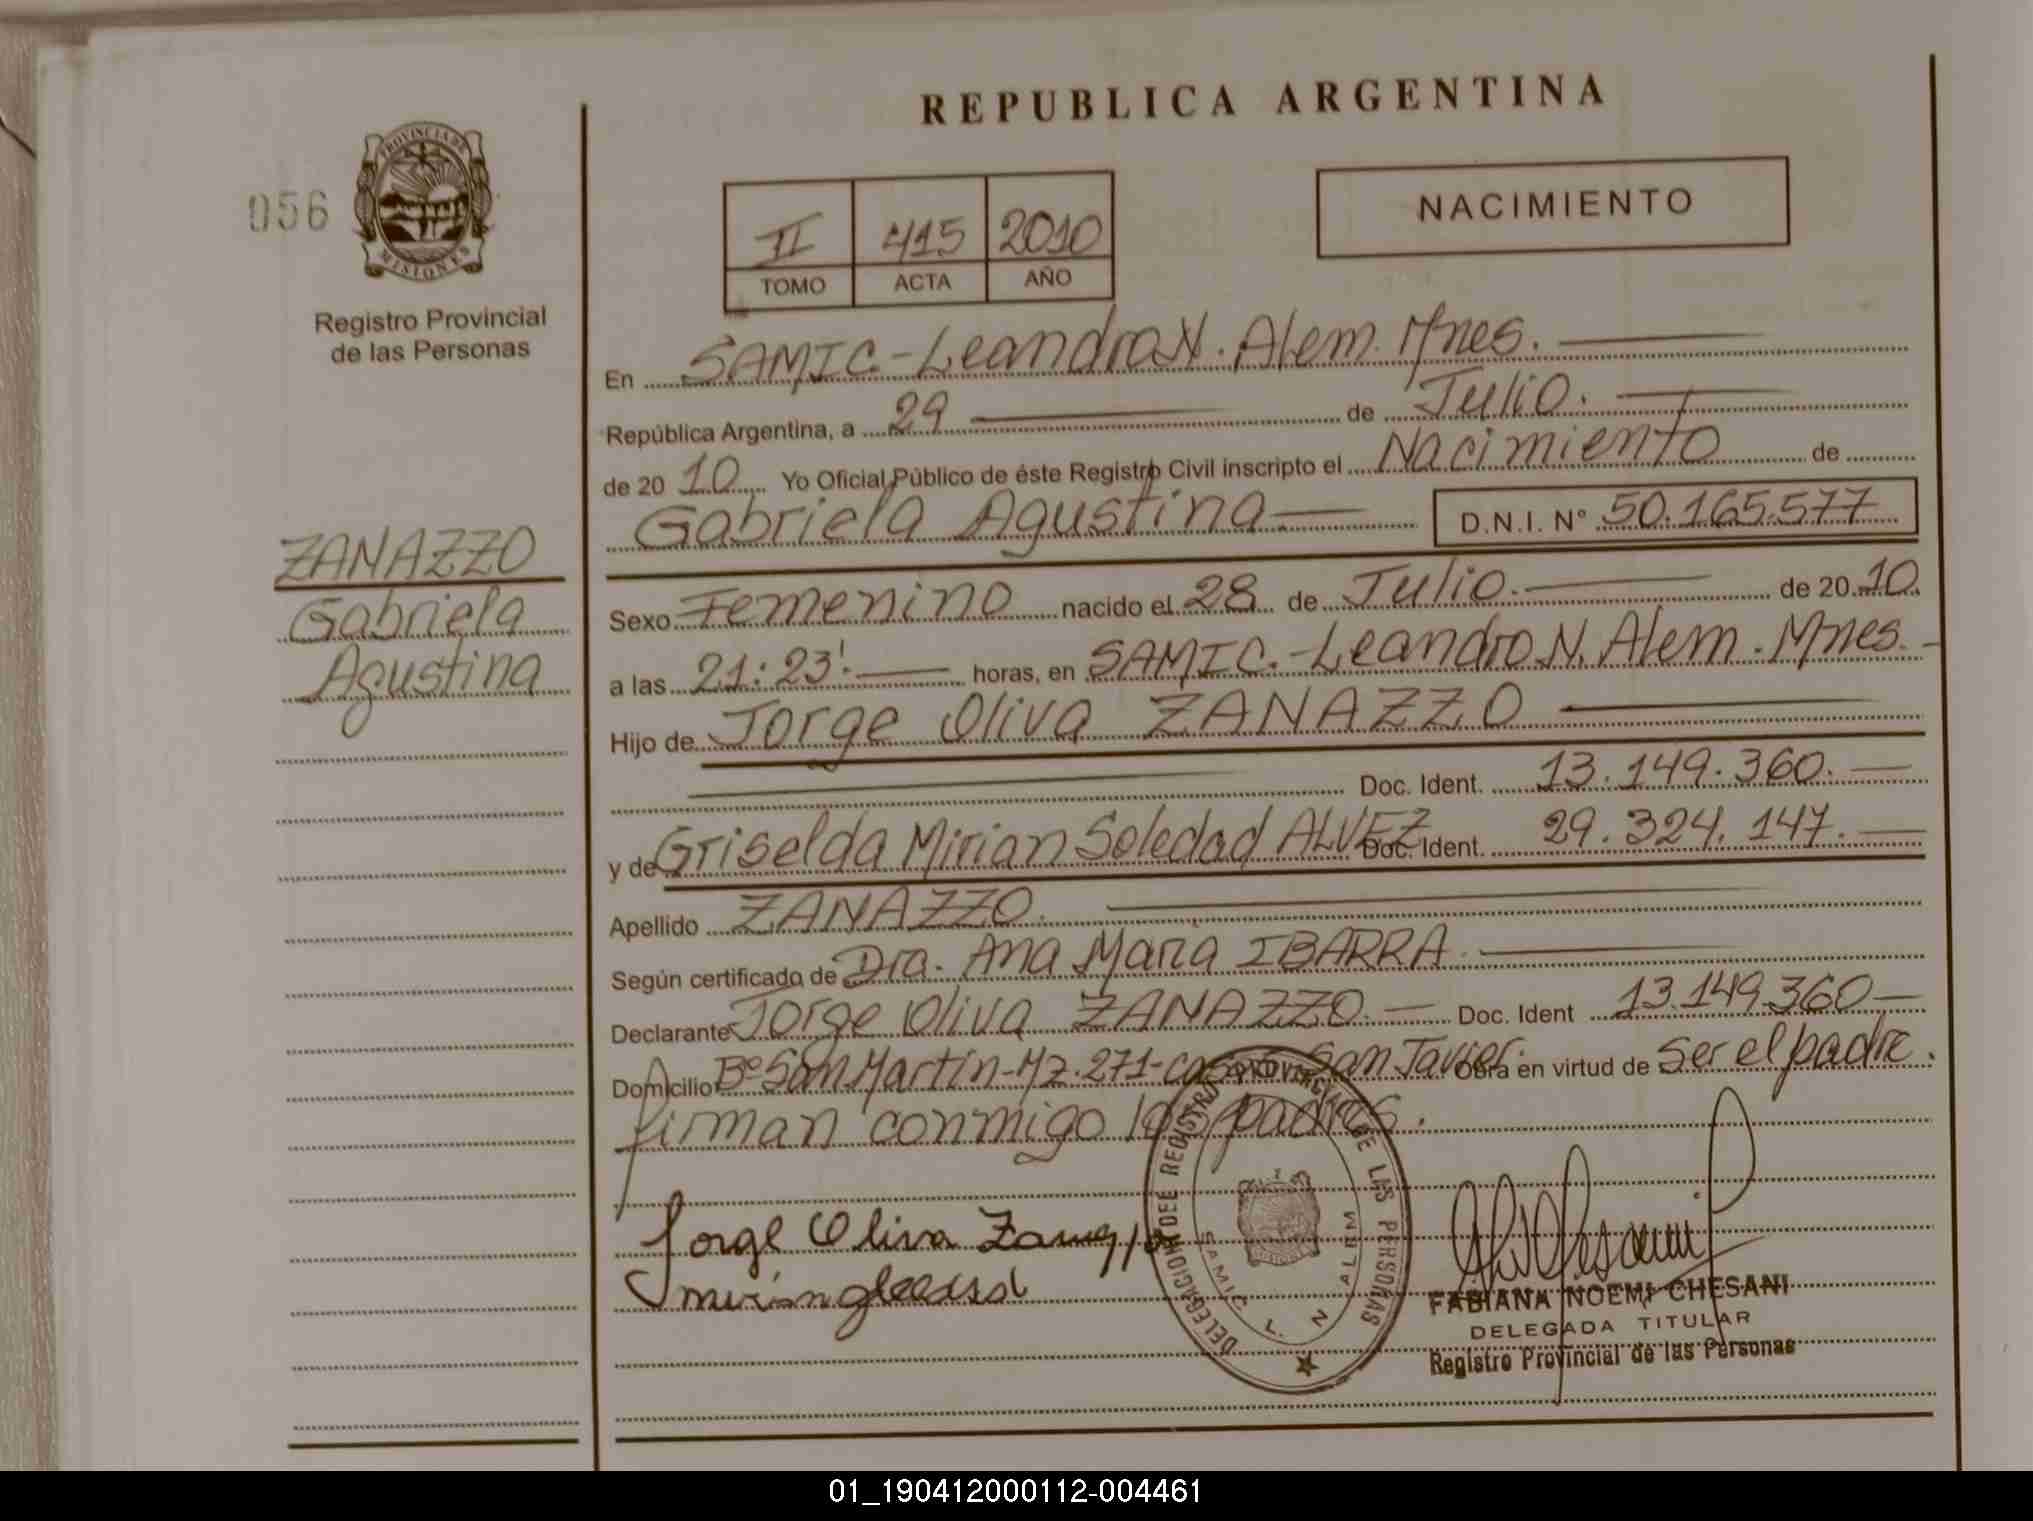 REPUBLICA ARGENTINA
056
PROVINCIA DE
MISIONES
Registro Provincial
de las Personas
II 415 2010
TOMO ACTA AÑO
NACIMIENTO
En SAMIC.-Leandro N. Alem. Mnes.
República Argentina, a 29 de Julio.
de 20 10 Yo Oficial Público de éste Registro Civil inscripto el Nacimiento de
Gabriela Agustina D.N.I. N° 50.165.577
ZANAZZO
Gabriela
Agustina
Sexo Femenino nacido el 28 de Julio. de 20 10.
a las 21:23'. horas, en SAMIC.-Leandro N. Alem. Mnes.-
Hijo de Jorge Oliva ZANAZZO
Doc. Ident. 13.149.360.
y de Griselda Mirian Soledad ALVEZ Doc. Ident. 29.324.147.
Apellido ZANAZZO.
Según certificado de Dra. Ana María IBARRA.
Declarante Jorge Oliva ZANAZZO. Doc. Ident 13.149.360
Domicilio B° San Martín-Mz. 271-casa San Javier. Obra en virtud de Ser el padre.
firman conmigo los padres.
Jorge Oliva
DELEGACION DEL REGISTRO PROVINCIAL DE LAS PERSONAS
SAMIC L. N ALEM
FABIANA NOEMI CHESANI
DELEGADA TITULAR
Registro Provincial de las Personas
01_190412000112-004461